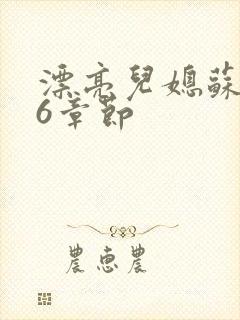 漂亮兒媳蘇
6章節
農惠農